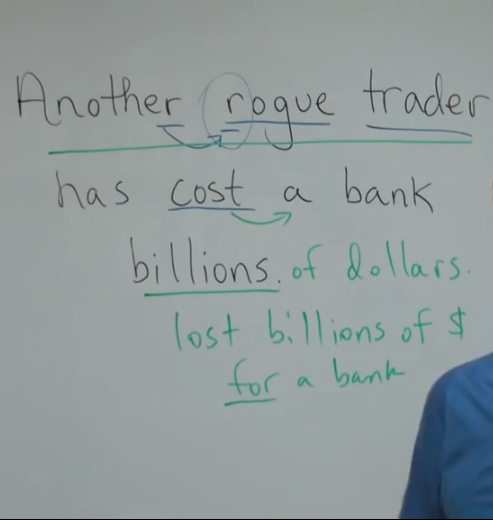 Another rogue trader
has cost a bank
billions. of dollars.
lost billions of $
for a bank